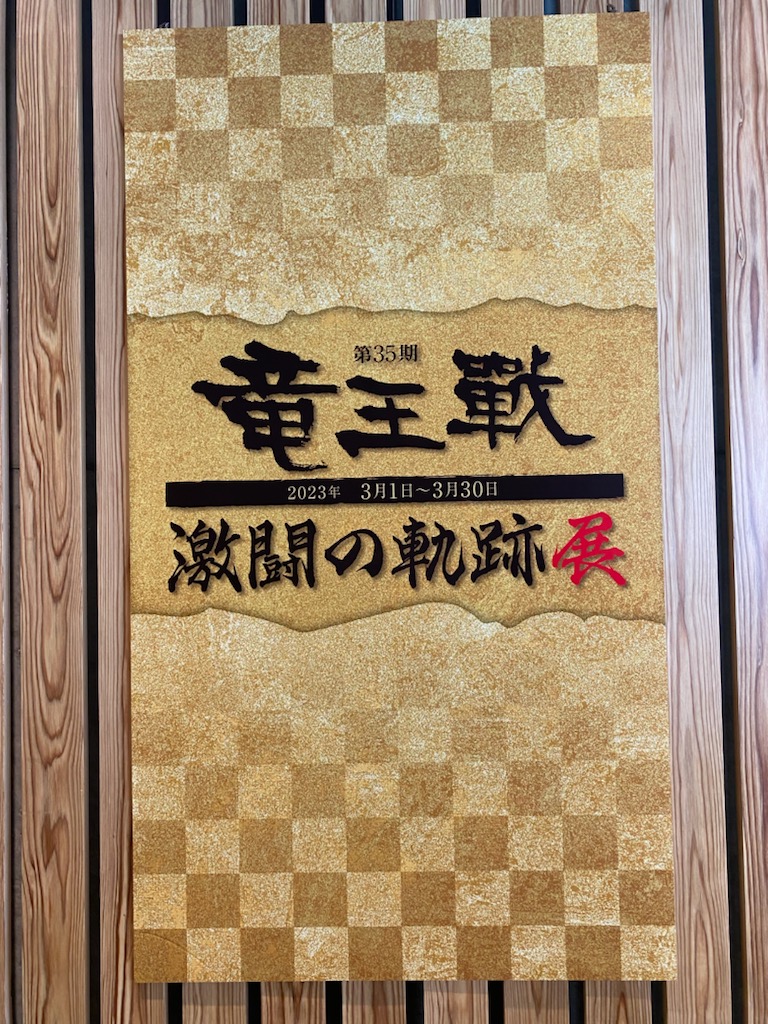 第35期
竜王戰
2023年 3月1日～3月30日
激闘の軌跡展